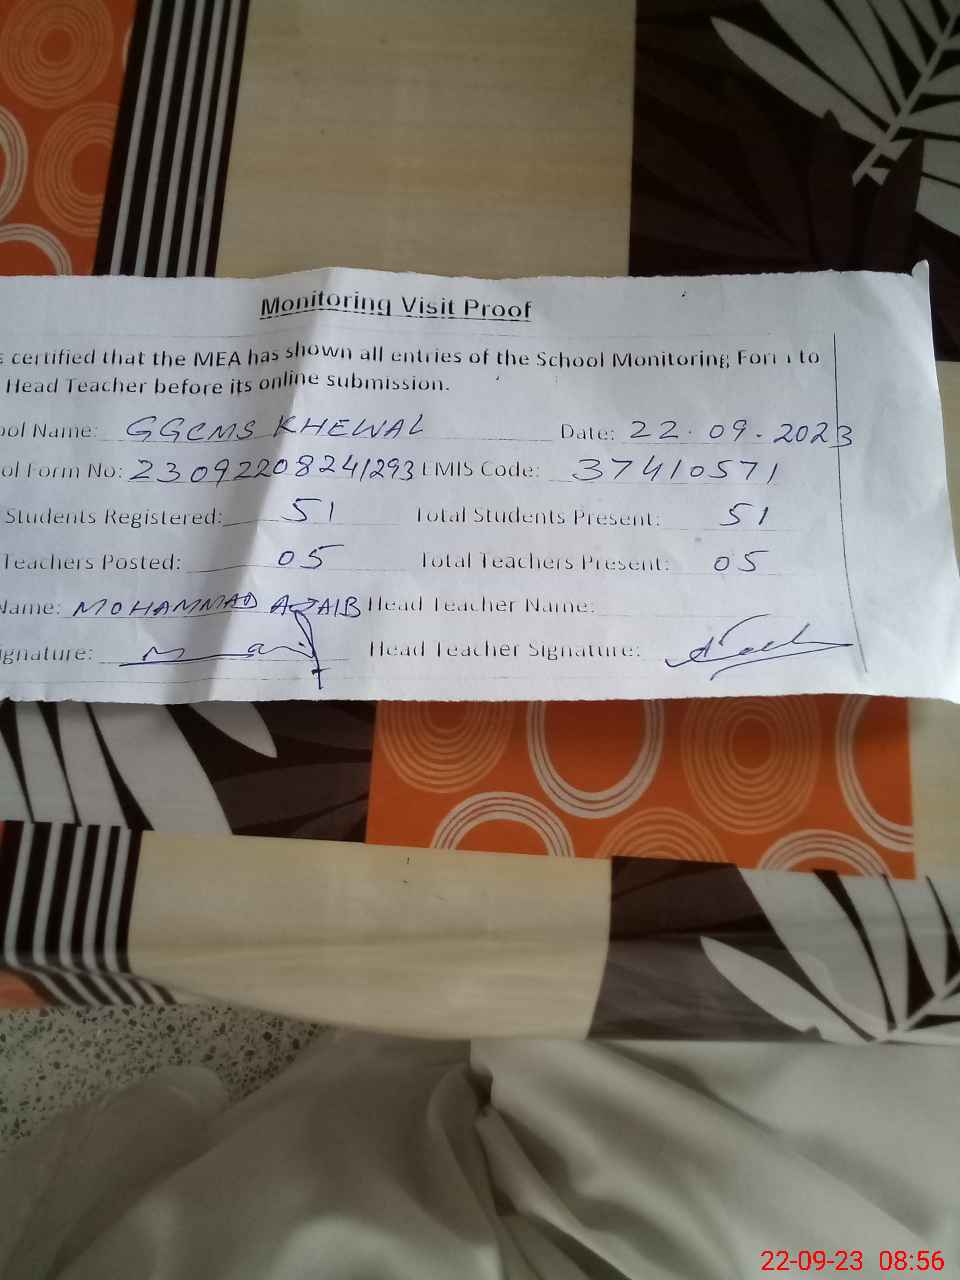 Monitoring Visit Proof
certified that the MEA has shown all entries of the School Monitoring Form to
Head Teacher before its online submission.
ool Name: GGCMS KHEWAL Date: 22.09.2023
ol Form No: 23092208241293 EMIS Code: 37410571
Students Registered: 51 Total Students Present: 51
Teachers Posted: 05 Total Teachers Present: 05
Name: MOHAMMAD AZAIB Head Teacher Name:
ignature: Head Teacher Signature:
22-09-23 08:56